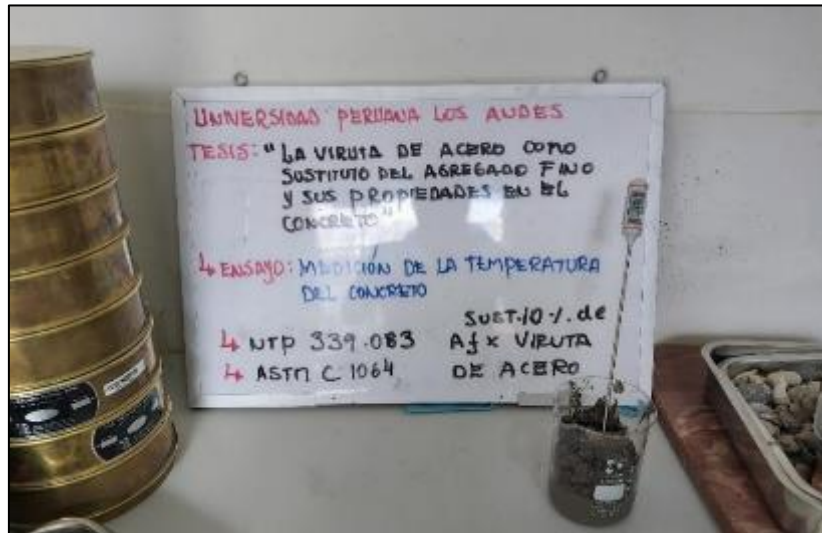 UNIVERSIDAD PERUANA LOS ANDES
TESIS: "LA VIRUTA DE ACERO COMO
SUSTITUTO DEL AGREGADO FINO
Y SUS PROPIEDADES EN EL
CONCRETO"
↳ ENSAYO: MEDICIÓN DE LA TEMPERATURA
DEL CONCRETO
↳ NTP 339.083
↳ ASTM C 1064
SUST.10%.de
Af x VIRUTA
DE ACERO